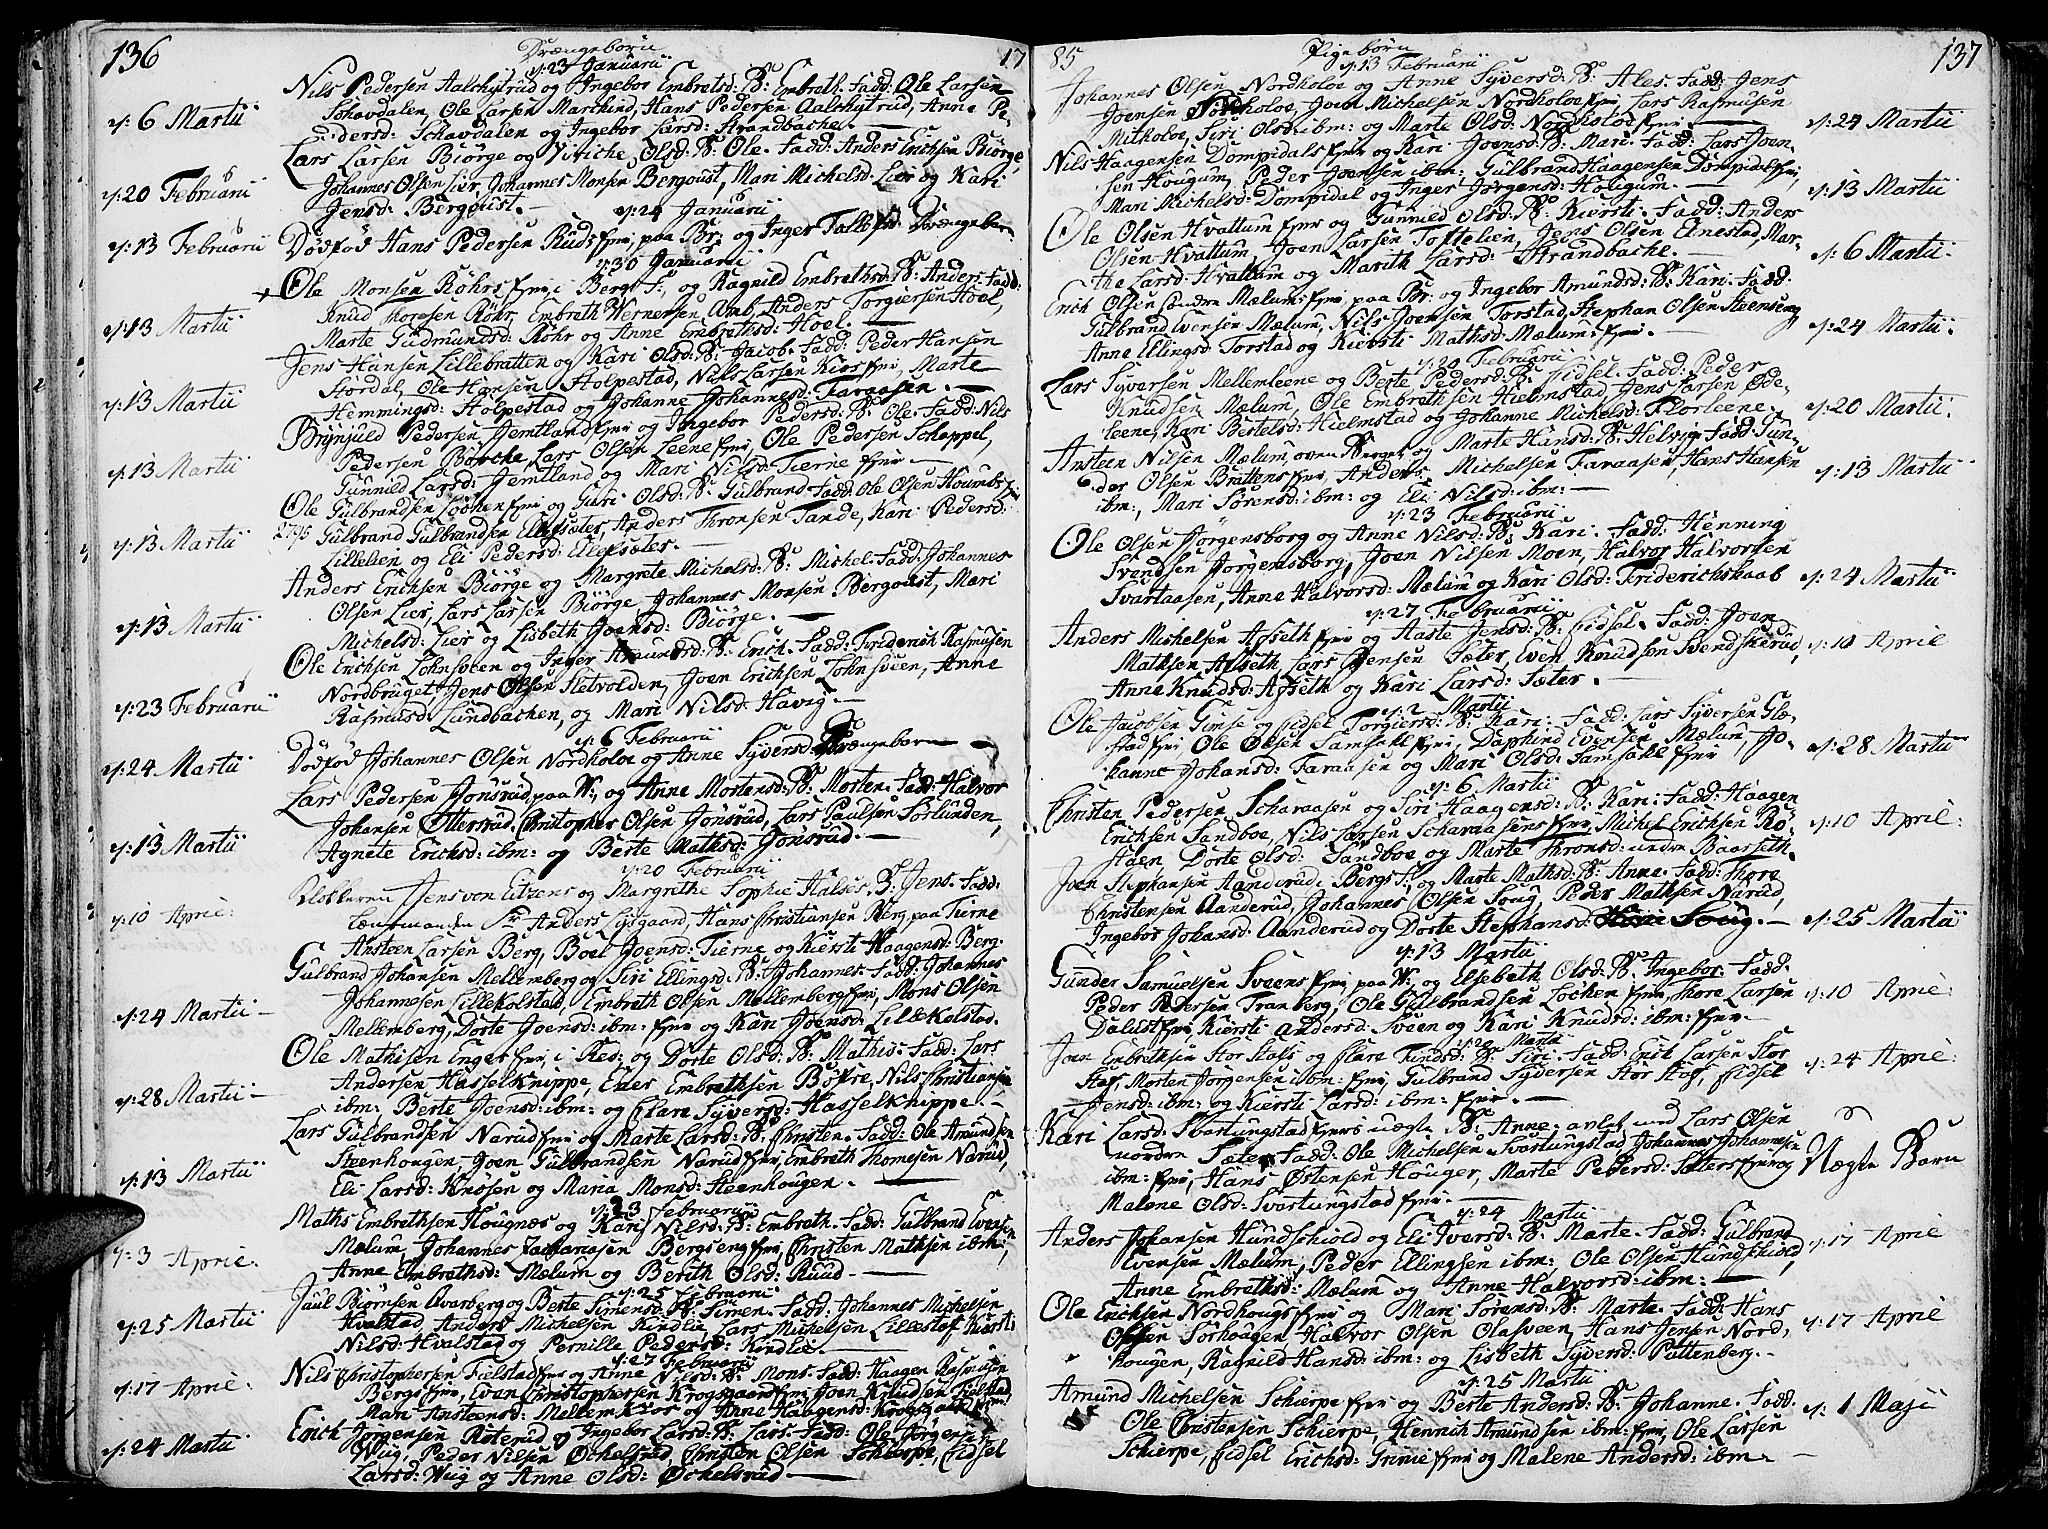 136
Drængebörn
17
d: 23 Januarii
Nils Pedersen Aalchytrud og Ingebor Embretsd: B: Embreth. Fadd: Ole Larsen
d: 6 Martii
Schavdalen, Ole Larsen Marchind, Hans Pedersen Aalchytrud, Anne Pe-
dersd: Schavdalen og Ingebor Larsd: Strandbache.
Lars Larsen Biörge og Olsd: B: Ole. Fadd: Anders Erichsen Biörge,
d: 20 Februarii
Johannes Olsen Lier, Johannes Monsen Bergoust, Mari Michelsd: Lier og Kari
Jensd: Bergoust.
d: 24 Januarii
d: 13 Februarii
Dödfød Hans Pedersen Ruds paa Br: og Inger Drængebarn
d: 30 Januarii
Ole Monsen Röhrs i Bergs F:, og Ragnild Embrethsd: B: Anders. Fadd:
d: 13 Martii
Knud Thoresen Röhr, Embreth Wernersen Amb, Anders Torgiersen Hoel,
Marte Gudmundsd: Röhr og Anne Embrethsd: Hoel.
Jens Hansen Lillebratten og Kari Olsd: B: Jacob. Fadd: Peder Hansen
d: 13 Martii
Stordal, Ole Hansen Stolpestad, Nils Larsen Kios Marte
Hemmingsd: Stolpestad og Johanne Johannesd: Faraasen.
Brynjuld Pedersen Jemtland og Ingebor Pedersd: B: Ole. Fadd: Nils
d: 13 Martii
Pedersen Börche, Lars Olsen Leene Ole Pedersen Scheppel,
Gunnild Larsd: Jemtland og Mari Nilsd: Tierne
Ole Gulbrandsen Löchen og Guri Olsd: B: Gulbrand. Fadd: Ole Olsen
d: 13 Martii
Gulbrand Gulbrandsen Ellefsæter, Anders Thronsen Tande, Kari Pedersd:
Lillelien og Eli Pedersd: Ellefsæter.
Anders Erichsen Biörge og Margrete Michelsd: B: Michel. Fadd: Johannes
d: 13 Martii
Olsen Lier, Lars Larsen Biörge, Johannes Monsen Bergoust, Mari
Michelsd: Lier og Lisbeth Joensd: Biörge.
Ole Erichsen Löhnsveen og Inger Amundsd: B: Erich. Fadd: Friderich Rasmusen
d: 23 Februarii
Nordbruget, Jens Olsen Hetvolden, Joen Erichsen Löhnsveen, Anne
Rasmusd: Lundbachen, og Mari Nilsd: Havig.
d: 6 Februarii
d: 24 Martii
Dödfød Johannes Olsen Nordholoe og Anne Syversd: Drængebarn
Lars Pedersen Jönsrud, paa W:, og Anne Mortensd: B: Morten. Fadd: Halvor
d: 13 Martii
Johansen Ottersrud, Christopher Olsen Jönsrud, Lars Paulsen Sörlunden,
Agnete Erichsd: ibm: og Berte Mathsd: Jönsrud.
d: 20 Februarii
d: 10 April:
Klokkeren Jens von Eitzens og Margrethe Sophie Halses B: Jens. Fadd:
Lænsmanden Sr Anders Lysgaard, Hans Christiansen Berg paa Tierne
Ansteen Larsen Berg, Boel Joensd: Tierne og Kiersti Haagensd: Berg.
Gulbrand Johansen Mellemberg og Siri Ellingsd: B: Johannes. Fadd: Johannes
d: 24 Martii
Johannesen Lillekolstad, Embreth Olsen Mellemberg Mons Olsen
Mellemberg, Dorte Joensd: ibm: og Kari Joensd: Lillekolstad.
Ole Mathisen Enger i Red: og Dorte Olsd: B: Mathis. Fadd: Lars
d: 28 Martii
Andersen Hasselknippe, Eiler Embrethsen Böfre, Nils Christiansen
ibm: Berte Joensd: ibm: og Clare Syversd: Hasselknippe.
Lars Gulbrandsen Narud og Marte Larsd: B: Christen. Fadd: Ole Amundsen
d: 13 Martii
Steenhougen, Joen Gulbrandsen Narud Embreth Thomesen Narud,
Eli Larsd: Knssen og Maria Monsd: Steenhougen.
d: 23 Februarii
Maths Embrethsen Hougnæs og Kari Nilsd: B: Embreth. Fadd: Gulbrand Evensen
d: 3 April:
Mælum, Johannes Zachariasen Bergseng Christen Mathsen ibm:
Anne Embrethsd: Mælum og Berith Olsd: Ruud.
d: 25 Februarii
Paul Biörnsen Avarberg og Berte Simensd: B: Simen. Fadd: Johannes Michelsen
d: 25 Martii
Kvalstad, Anders Michelsen Kindlie, Lars Michelsen Lillestaf, Kiersti
Nilsd: Hvalstad og Pernille Pedersd: Kindlie.
d: 27 Februarii
Nils Christophersen Fielstad og Anne Nilsd: B: Mons. Fadd: Haagen Rasmusen
d: 17 April:
Bergs Even Christophersen Krogsgaard Joen Knudsen Fielstad,
Mari Ansteensd: Mellemkios og Anne Haagensd:
Erich Jörgensen Röterud og Ingebor Larsd: B: Lars. Fadd: Ole Jörgens:
d: 24 Martii
Wiig, Peder Nilsen Öchelsrud, Christen Olsen Schierpe, Eidsel
Larsd: Wiig og Anne Olsd: Öckelsrud.
85
Pigebörn
137
d: 13 Februarii
Johannes Olsen Nordholoe og Anne Syversd: B: Ales. Fadd: Jens
Joensen Nordholoe, Joen Michelsen Nordholoe Lars Rasmusen
d: 24 Martii
Mitholoe, Siri Olsd: ibm: og Marte Olsd: Nordholoe
Nils Haagensen Dompidals og Kari Joensd: B: Mari. Fadd: Lars Joen-
sen Hougum, Peder Joensen ibm: Gulbrand Haagensen Dompidal
d: 13 Martii
Mari Michelsd: Dompidal og Inger Jörgensd: Hougum.
Ole Olsen Hvattum og Gunnild Olsd: B: Kiersti. Fadd: Anders
Olsen Hvattum, Joen Larsen Toftelien, Jens Olsen Einestad, Mar-
d: 6 Martii
the Larsd: Hvattum og Marith Larsd: Strandbache.
Erich Olsen Söndre Mælums paa Br: og Ingebor Amundsd: B: Kari. Fadd:
Gulbrand Evensen Mælum, Nils Joensen Torstad, Stephan Olsen Steenseng
d: 24 Martii
Anne Ellingsd: Torstad og Kiersti Mathsd: Mælum.
d: 20 Februarii
Lars Syversen Mellemleene og Berte Pedersd: B: Eidsel. Fadd: Peder
Knudsen Mælum, Ole Embrethsen Hielmstad, Jens Larsen Öde-
d: 20 Martii
leene, Kari Bertelsd: Hielmstad og Johanne Michelsd: Florleene.
Ansteen Nilsen Mælum, oven Berget og Marte Hansd: B: Helvig. Fadd: Gun-
der Olsen Brattens Anders Michelsen Faraasen, Hans Hansen
d: 13 Martii
ibm:, Mari Sörensd: ibm: og Eli Nilsd: ibm:
d: 23 Februarii
Ole Olsen Jörgensborg og Anne Nilsd: B: Kari. Fadd: Henning
Svendsen Jörgensborg, Joen Nilsen Moen, Halvor Halvorsen
d: 24 Martii
Svartaasen, Anne Halvorsd: Mælum og Kari Olsd: Friderichskaab
d: 27 Februarii
Anders Michelsen Apseth og Aaste Jensd: B: Eidsel. Fadd: Joen
d: 10 April
Mathsen Apseth, Lars Jensen Sæter, Even Knudsen Svendskerud,
Anne Knudsd: Apseth og Kari Larsd: Sæter.
d: 2 Martii
Ole Jacobsen Gimse og Eidsel Torgiersd: B: Kari. Fadd: Lars Syversen Glæ-
stad Ole Olsen Samsahl Daphind Evensen Mælum, Jo-
d: 28 Martii
hanne Johansd: Faraasen og Mari Olsd: Samsahl
d: 6 Martii
Christen Pedersen Scharaasen og Siri Haagensd: B: Kari. Fadd: Haagen
Erichsen Sandboe, Nils Larsen Scharaasens Michel Erichsen Rö-
d: 10 April:
staen Dorte Olsd: Sandboe og Marte Thronsd: under Baarseth.
Joen Stephansen Aanderud i Bergs F:, og Marte Mathsd: B: Anne. Fadd: Thore
Christensen Aanderud, Johannes Olsen Soug, Peder Mathsen Narud,
d: 25 Martii
Ingebor Johansd: Aanderud og Dorte Stephansd: Soug.
d: 13 Martii
Gunder Samuelsen Sveens paa W: og Elsebeth Olsd: B: Ingebor. Fadd:
Peder Pedersen Tranberg, Ole Gulbrandsen Löchen Thore Larsen
d: 10 April:
Dalest Kiersti Andersd: Sveen og Kari Knudsd: ibm:
d: 20 Martii
Joen Embrethsen Stor Staf og Clare Gundsd: B: Siri. Fadd: Erich Larsen Stor
d: 24 April:
Staf, Morten Jörgensen ibm: Gulbrand Syversen Stor Staf, Eidsel
Jensd: ibm: og Kiersti Larsd: ibm:
Kari Larsd: Svartungstad uægte B: Anne. avlet med Lars Olsen
nordre Sæter. Fadd: Ole Michelsen Svartungstad, Johannes Johannesen
Uægte Barn
ibm: Hans Östensen Houger, Marte Pedersd: Sæters og
Malene Olsd: Svartungstad
d: 24 Martii
Anders Johansen Hundschiold og Eli Iversd: B: Marte. Fadd: Gulbrand
d: 17 April
Evensen Mælum, Peder Ellingsen ibm: Ole Olsen Hundschiold,
Anne Embrethsd: Mælum og Anne Halvorsd: ibm:
Ole Erichsen Nordhougs og Mari Sörensd: B: Marte. Fadd: Hans
d: 17 April
Olsen Sörhougen, Halvor Olsen Olasveen, Hans Jensen Nord,
hougen, Ragnild Hansd: ibm: og Lisbeth Syversd: Puttenberg.
d: 25 Martii
Amund Michelsen Schierpe og Berte Andersd: B: Johanne. Fadd.
d: 1 Maji
Ole Christensen Schierpe, Henrich Amundsen ibm: Ole Larsen
Schierpe, Eidsel Erichsd: Grinie og Malene Andersd: ibm.